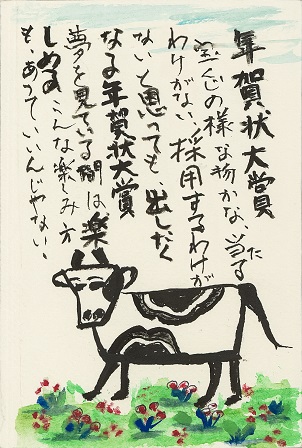 年賀状大賞
宝くじの様な物かな 当る
わけがない、採用するわけが
ないと思っても 出したく
なる年賀状大賞
夢を見ている間は楽
しめる こんな楽しみ方
も、あっていいんじゃない、
た